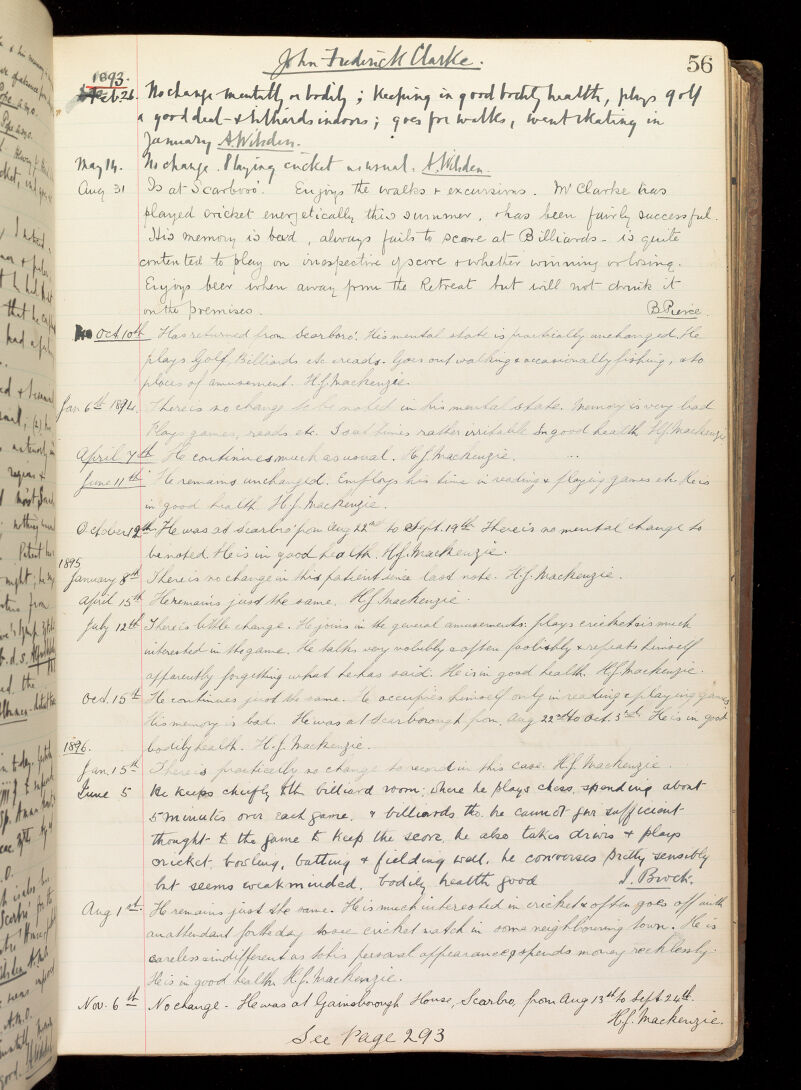 John Frederick Clarke.
56
1893.
Feb 26. No change mentally or bodily; keeping in good bodily health, plays golf
a good deal & billiards indoors; goes for walks, went skating in
January A. Wilsden.
May 14. No change. Playing cricket as usual. A. Wilsden.
Aug 31 Is at Scarboro'. Enjoys the walks & excursions. Mr Clarke has
played cricket energetically this summer, & has been fairly successful.
His memory is bad, always fails to score at Billiards - is quite
contented to play on irrespective of score & whether winning or losing.
Enjoys beer when away from the Retreat but will not drink it
on the premises. B Pierce.
Oct. 10th Has returned from Scarboro'. His mental state is practically unchanged. He
plays Golf, Billiards etc & reads. Goes out walking & occasionally fishing, & to
places of amusement. H.J. Mackenzie.
Jan. 6th 1894. There is no change to be noted in his mental state. Memory is very bad
Plays games, reads etc. Is at times rather irritable. In good health. H.J. Mackenzie
April 7th He continues much as usual. H.J. Mackenzie.
June 11th He remains unchanged. Employs his time in reading & playing games etc. He is
in good health. H.J. Mackenzie.
October 12th He was at Scarbro' from Aug 22nd to Sept. 19th. There is no mental change to
be noted. He is in good health. H.J. Mackenzie.
1895
January 8th There is no change in this patient since last note. H.J. Mackenzie.
April 15th He remains just the same. H.J. Mackenzie.
July 12th There is little change. He joins in the general amusements: plays cricket & is much
interested in the game. He talks very volubly & often foolishly & repeats himself
apparently forgetting what he has said. He is in good health. H.J. Mackenzie.
Oct. 15th He continues just the same. He occupies himself only in reading & playing games
His memory is bad. He was at Scarborough from Aug 22nd to Oct. 3rd. He is in good
1896. bodily health. H.J. Mackenzie.
Jan. 15th There is practically no change to record in this case. H.J. Mackenzie.
June 5 He keeps chiefly to the billiard room; where he plays chess, spending about
5 minutes over each game, & billiards tho. he cannot give sufficient
thought to the game to keep the score, he also takes drives & plays
cricket, bowling, batting & fielding well. he converses pretty sensibly
but seems weakminded. bodily health good J. Brock.
Aug 1st. He remains just the same. He is much interested in cricket & often goes off with
an attendant for the day to see cricket match in some neighbouring town. He is
careless & indifferent as to his personal appearance & spends money recklessly.
He is in good health. H.J. Mackenzie.
Nov. 6th No change. He was at Gainsborough House, Scarbro, from Aug 13th to Sept. 24th.
H.J. Mackenzie.
See Page 293